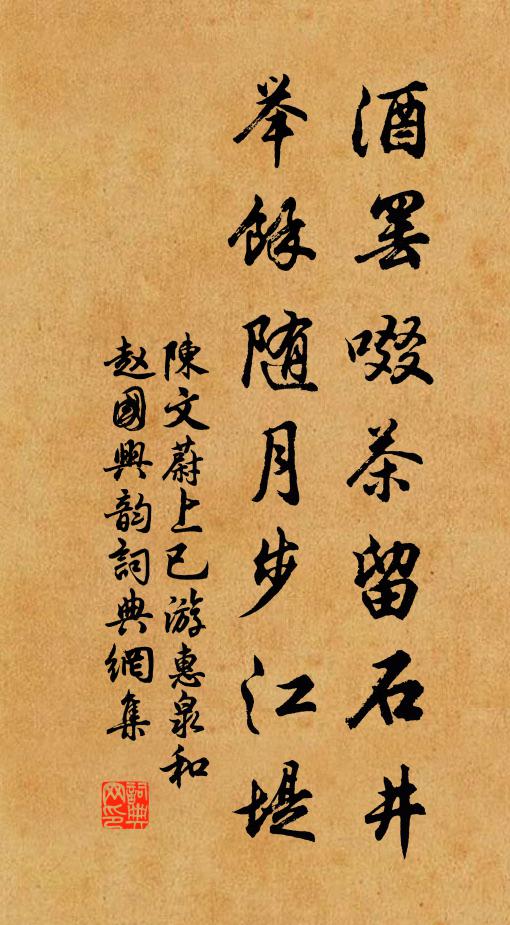 酒罢啜茶留石井
举馀随月步江堤
陳文蔚上巳游惠泉和
赵國興韵詞典網集
詞典网印